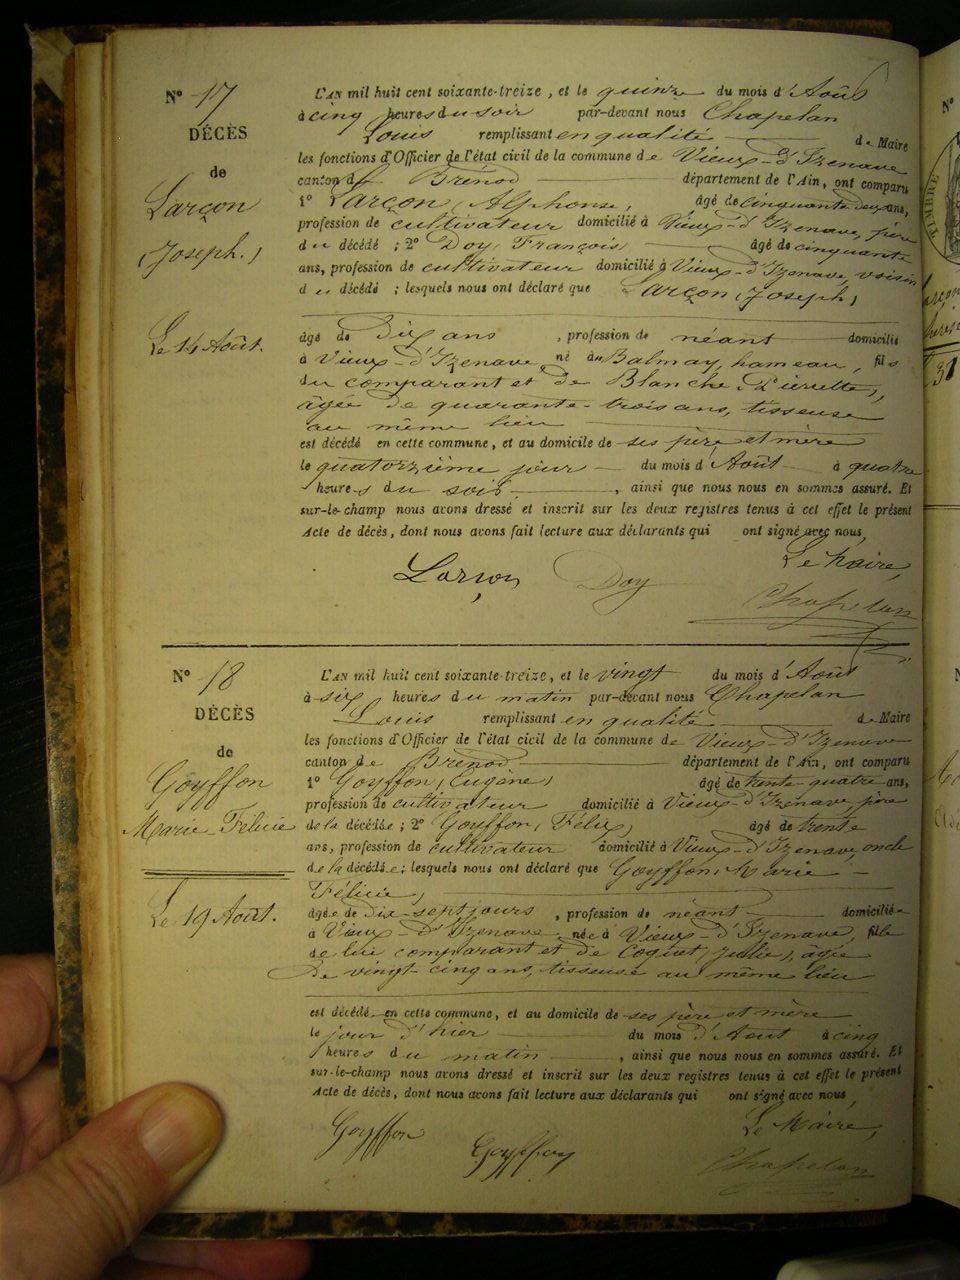 Nº 17
DÉCÈS
de
Larçon
(Joseph.)
Le 14 Août.
L'AN mil huit cent soixante-treize, et le quinze du mois d'Août
à cinq heures du soir par-devant nous Chapelan
Louis remplissant en qualité de Maire
les fonctions d'Officier de l'état civil de la commune de Vieux-d'Izenave
canton de Brénod département de l'Ain, ont comparu
1º Larçon (Alphonse, âgé de cinquante deux ans,
profession de cultivateur domicilié à Vieux-d'Izenave, père
du décédé ; 2º Doy, François, âgé de cinquante
ans, profession de cultivateur domicilié à Vieux-d'Izenave, voisin
du décédé ; lesquels nous ont déclaré que Larçon (Joseph)
âgé de Dix ans , profession de néant domicilié
à Vieux-d'Izenave, né au Balmay, hameau, fils
du comparant et de Blanche (Pierrette),
âgée de quarante-trois ans, tisseuse
au même lieu
est décédé en cette commune, et au domicile de ses père et mère
le quatorzième jour du mois d'Août à quatre
heures du soir , ainsi que nous nous en sommes assuré. Et
sur-le-champ nous avons dressé et inscrit sur les deux registres tenus à cet effet le présent
Acte de décès, dont nous avons fait lecture aux déclarants qui ont signé avec nous,
Le Maire,
Larçon Doy Chapelan
Nº 18
DÉCÈS
de
Goyffon
Marie-Félicie
Le 19 Août.
L'AN mil huit cent soixante-treize, et le vingt du mois d'Août
à six heures du matin par-devant nous Chapelan
Louis remplissant en qualité de Maire
les fonctions d'Officier de l'état civil de la commune de Vieux-d'Izenave
canton de Brénod département de l'Ain, ont comparu
1º Goyffon (Eugène) âgé de trente-quatre ans,
profession de cultivateur domicilié à Vieux-d'Izenave, père
de la décédée ; 2º Goyffon, Félix, âgé de trente
ans, profession de cultivateur domicilié à Vieux-d'Izenave, oncle
de la décédée ; lesquels nous ont déclaré que Goyffon, Marie-
Félicie,
âgée de dix-sept jours , profession de néant domiciliée
à Vieux-d'Izenave, née à Vieux-d'Izenave, fille
de lui comparant et de Coquet, Julie, âgée
de vingt-cinq ans, tisseuse au même lieu
est décédée en cette commune, et au domicile de ses père et mère
le jour d'hier du mois d'Août à cinq
heures du matin , ainsi que nous nous en sommes assuré. Et
sur-le-champ nous avons dressé et inscrit sur les deux registres tenus à cet effet le présent
Acte de décès, dont nous avons fait lecture aux déclarants qui ont signé avec nous,
Le Maire,
Goyffon Goyffon Chapelan
Nº
TIMBRE